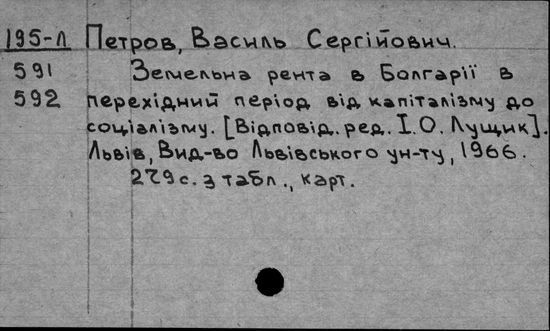 195-Л Петров, Василь Сергійович.
591 Земельна рента в Болгарії в
592 перехідний період від капіталізму до
соціалізму. [Відповід. ред. І. О. Лущик].
Львів, Вид-во Львівського ун-ту, 1966.
279 с. з табл., карт.